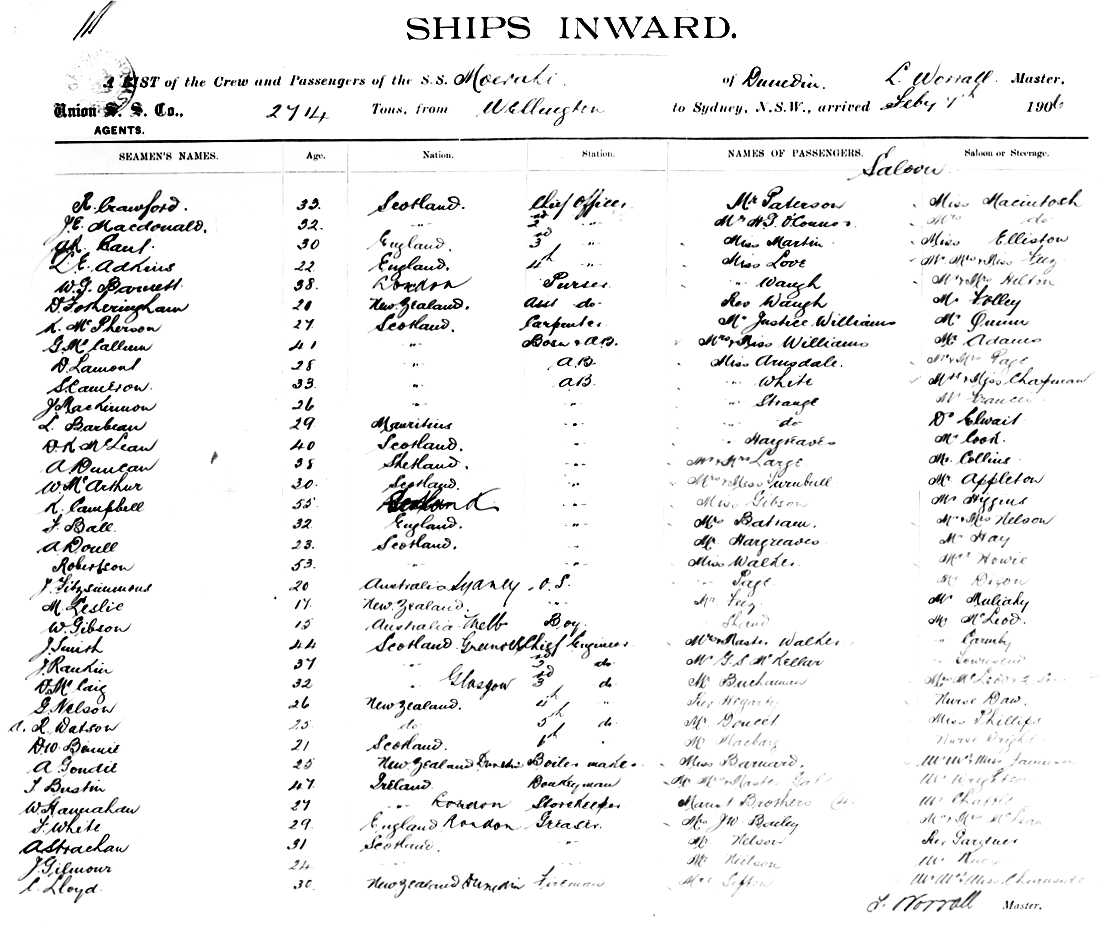 SHIPS INWARD.
A LIST of the Crew and Passengers of the S.S. Moeraki of Dunedin L. Worrall Master,
Union S. S. Co., 2714 Tons, from Wellington to Sydney, N.S.W., arrived Feby 7th 1906
AGENTS.
SEAMEN'S NAMES. Age. Nation. Station. NAMES OF PASSENGERS. Saloon or Steerage.
Saloon
R. Crawford. 33. Scotland. Chief Officer Mr Paterson Miss Macintosh
J.E. Macdonald. 32. " 2nd " Mr H.J. O'Connor Mrs do
30 England. 3rd " Miss Martin Miss Elliston
L.E. Adkins 22 England. 4th " Miss Love Mr Mrs & Miss
W.G. Barrett 38. London Purser " Waugh Mr & Mrs Hilton
D. Fotheringham 28 New Zealand. Asst do Rev Waugh Mr Folley
K. McPherson 27 Scotland. Carpenter Mr Justice Williams Mr Quinn
G. McCallum 41 " Bosn & A.B. Mrs & Miss Williams Mr Adams
D. Lamont 28 " A.B. Miss Mr & Mrs Page
S. Cameron 33 " A.B. " White Mrs & Miss Chapman
J. Mackinnon 26 " " " Strange Mr
L. Barbeau 29 Mauritius " " do Dr
D.K. McLean 40 Scotland. " " Hargreaves Mr Cook
A Duncan 38 Shetland. " Mr & Mrs Large Mr Collins
W. McArthur 30. Scotland. " Mrs & Miss Turnbull Mr Appleton
K. Campbell 55 Scotland " Miss Gibson Mr Higgins
F. Ball 32 England. " Mr Mr & Mrs Nelson
A. Doull 23. Scotland. " Mr Hargreaves Mr Hay
Robertson 53. " " Miss Walker Mrs Howie
J. Fitzsimmons 20 Australia Sydney O.S. " Page Mr Dixon
M. Leslie 17 New Zealand. " Mr Mr Mulcahy
W. Gibson 15 Australia Melb Boy " Mr McLeod.
J Smith 44 Scotland Greenock Chief Engineer Mrs & Master Walker "
J Rankin 37 " 2nd do Mr G.S. McKellar " Townsend
D. McCaig 32 " Glasgow 3rd do Mr Buchanan
G. Nelson 26 New Zealand. 4th " Nurse Daw.
A. R. Watson 25 do 5th do Mr Miss Phillips
D.W. Binnie 21 Scotland. 6th " Mr Nurse Wright
A Goudie 25 New Zealand Dunedin Boiler maker Miss Barnard. Mr Mrs & Miss Jameson
T Bustin 47 Ireland Donkeyman Mr Mrs & Master Mr
W Hannahan 27 " London Storekeeper Marist Brothers Mr
F. White 29 England London Greaser Mr J.W. Bailey Mr & Mrs McLean
A Strachan 31 Scotland. " Mr Nelson Gardner
J Gilmour 24 " " Mr Neilson Mr
C Lloyd. 30 New Zealand Dunedin Fireman Mrs Sefton Mr Mrs & Miss
L. Worrall Master.